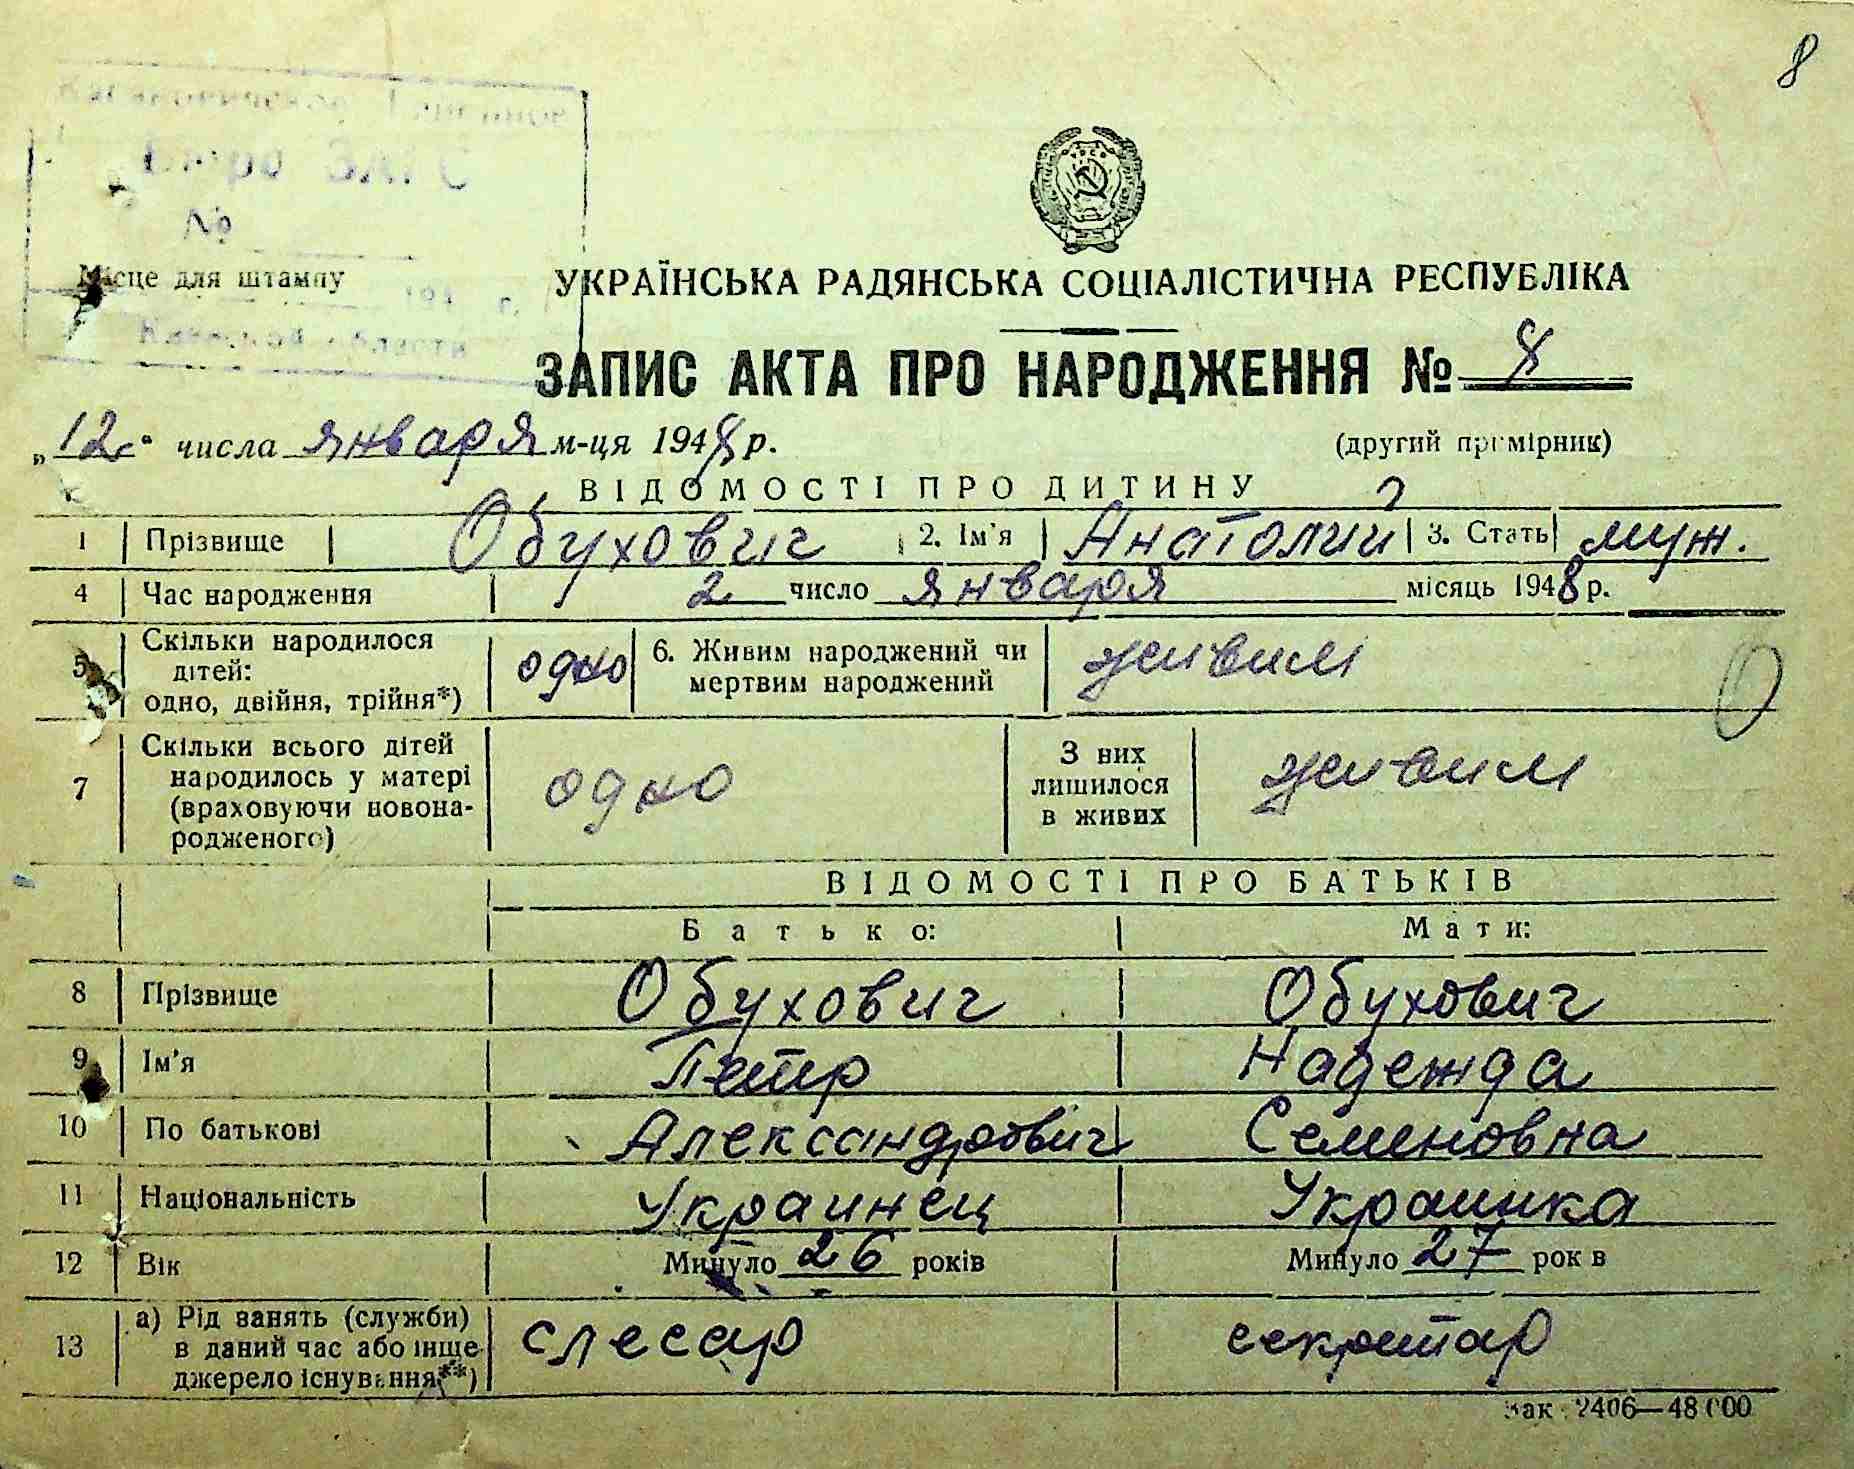 8
Бюро ЗАГС
№
Місце для штампу
194 г.
Киевской области
УКРАЇНСЬКА РАДЯНСЬКА СОЦІАЛІСТИЧНА РЕСПУБЛІКА
ЗАПИС АКТА ПРО НАРОДЖЕННЯ № 8
„12" числа января м-ця 1948 р. (другий примірник)
ВІДОМОСТІ ПРО ДИТИНУ
1 Прізвище Обухович 2. Ім'я Анатолий 3. Стать муж.
4 Час народження 2 число января місяць 1948 р.
5 Скільки народилося дітей: одно, двійня, трійня*) одно 6. Живим народжений чи мертвим народжений живим
7 Скільки всього дітей народилось у матері (враховуючи новонародженого) одно З них лишилося в живих живим
ВІДОМОСТІ ПРО БАТЬКІВ
Батько: Мати:
8 Прізвище Обухович Обухович
9 Ім'я Петр Надежда
10 По батькові Александрович Семеновна
11 Національність Украинец Украинка
12 Вік Минуло 26 років Минуло 27 років
13 а) Рід занять (служби) в даний час або інше джерело існування**) слесар секретар
Зак. 2406—48 000